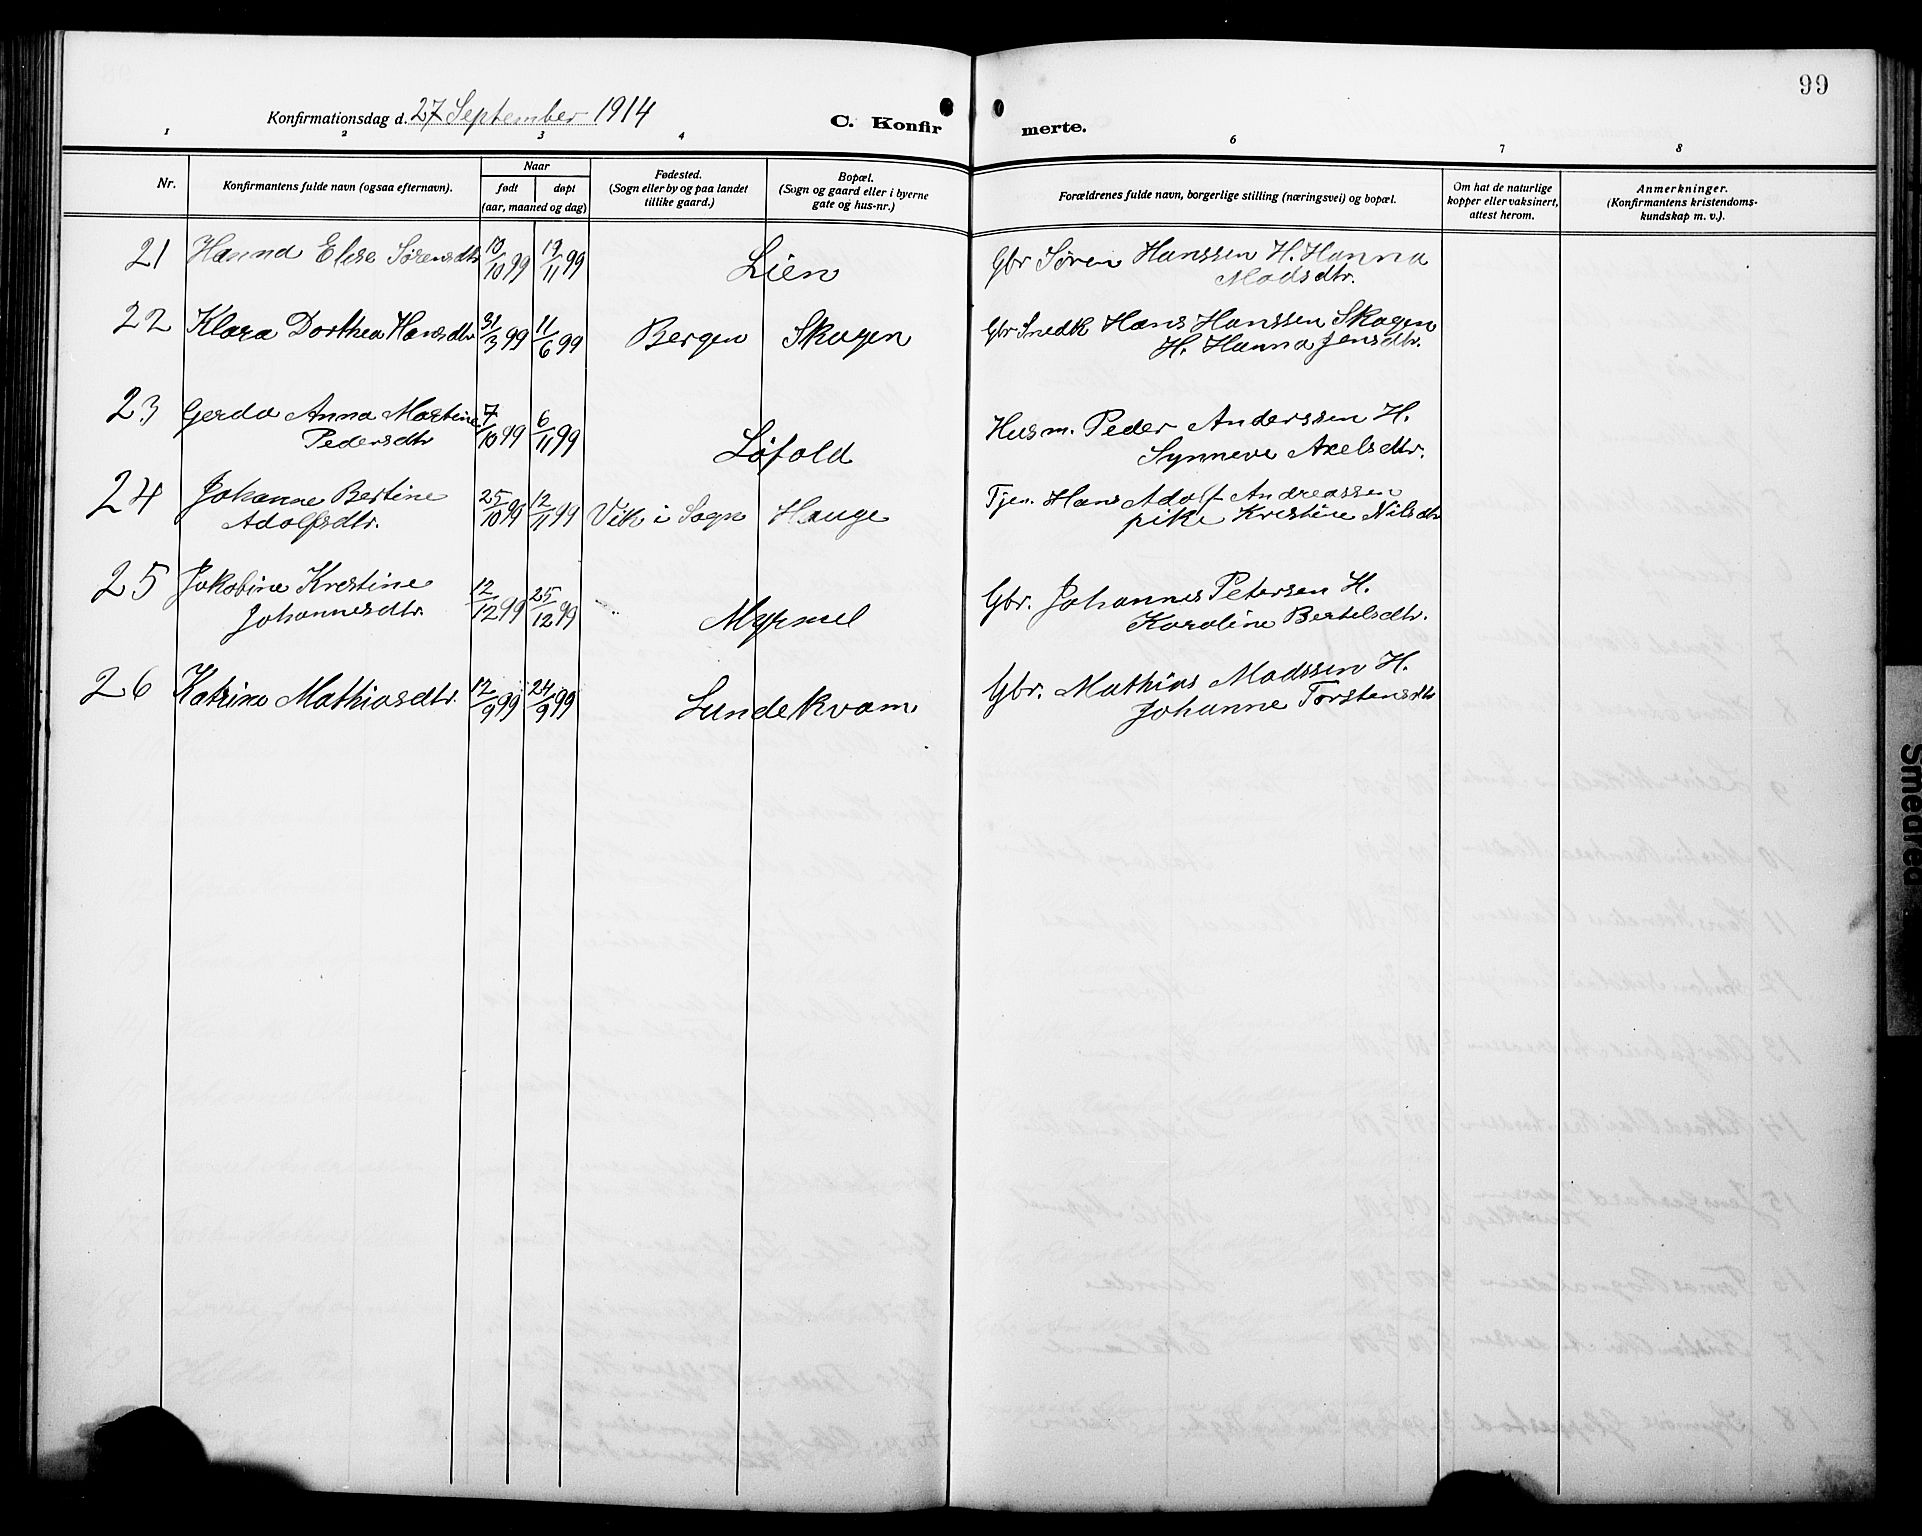 99
Konfirmationsdag d. 27 September 1914
C. Konfirmerte.
1 2 3 4 6 7 8
Nr.
Konfirmantens fulde navn (ogsaa efternavn).
Naar
født døpt
(aar, maaned og dag)
Fødested.
(Sogn eller by og paa landet
tillike gaard.)
Bopæl.
(Sogn og gaard eller i byerne
gate og hus-nr.)
Forældrenes fulde navn, borgerlige stilling (næringsvei) og bopæl.
Om hat de naturlige
kopper eller vaksinert,
attest herom.
Anmerkninger.
(Konfirmantens kristendoms-
kundskap m. v.).
21 Hanna Elise Sørensdtr 10/10 99 19/11 99 Lien Gbr Søren Hanssen H. Hanna
Madsdtr.
22 Klara Dorthea Hansdtr 31/3 99 11/6 99 Bergen Skagen Gbr Snedk Hans Hanssen Skagen
H. Hanna Jensdtr.
23 Gerda Anna Martine 7/10 99 6/11 99 Løfold Husm. Peder Anderssen H.
Pedersdtr Synneve Axelsdtr.
24 Johanne Bertine 25/10 99 12/11 99 Vik i Sogn Hauge Tjen. Hans Adolf Andreassen
Adolfsdtr. pike Kristine Nilsdtr
25 Jakobine Kristine 12/12 99 25/12 99 Myrmel Gbr. Johannes Petersen H.
Johannesdtr. Karoline Bertelsdtr.
26 Katrine Mathiasdtr. 12/9 99 24/9 99 Sundekvam Gbr. Mathias Madssen H.
Johanne Torstensdtr
Smedred